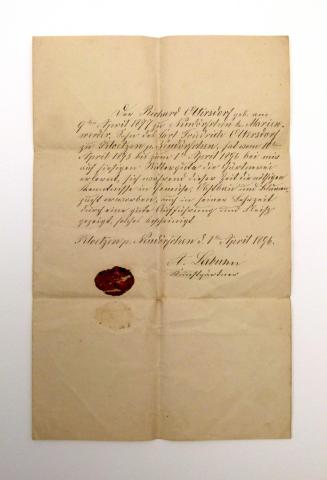 Der Richard Ottersdorf geb. am
9ten April 1877 zu Neudörfchen bei Marien-
werder, Sohn des Wirt Friedrich Ottersdorf
zu Klötzen p. Neudörfchen, hat vom 1ten
April 1893 bis zum 1t April 1896 bei mir
auf hiesigem Rittergute die Gärtnerei
erlernt, sich während dieser Zeit die nöthigen
Kenntnisse in Gemüse, Obstbau und Blumen
zucht erworben, auch in seiner Lehrzeit
durch eine gute Aufführung und Fleiß
gezeigt, solches bescheinigt
Klötzen p. Neudörfchen d. 1ten April 1896.
A.
Kunstgärtner